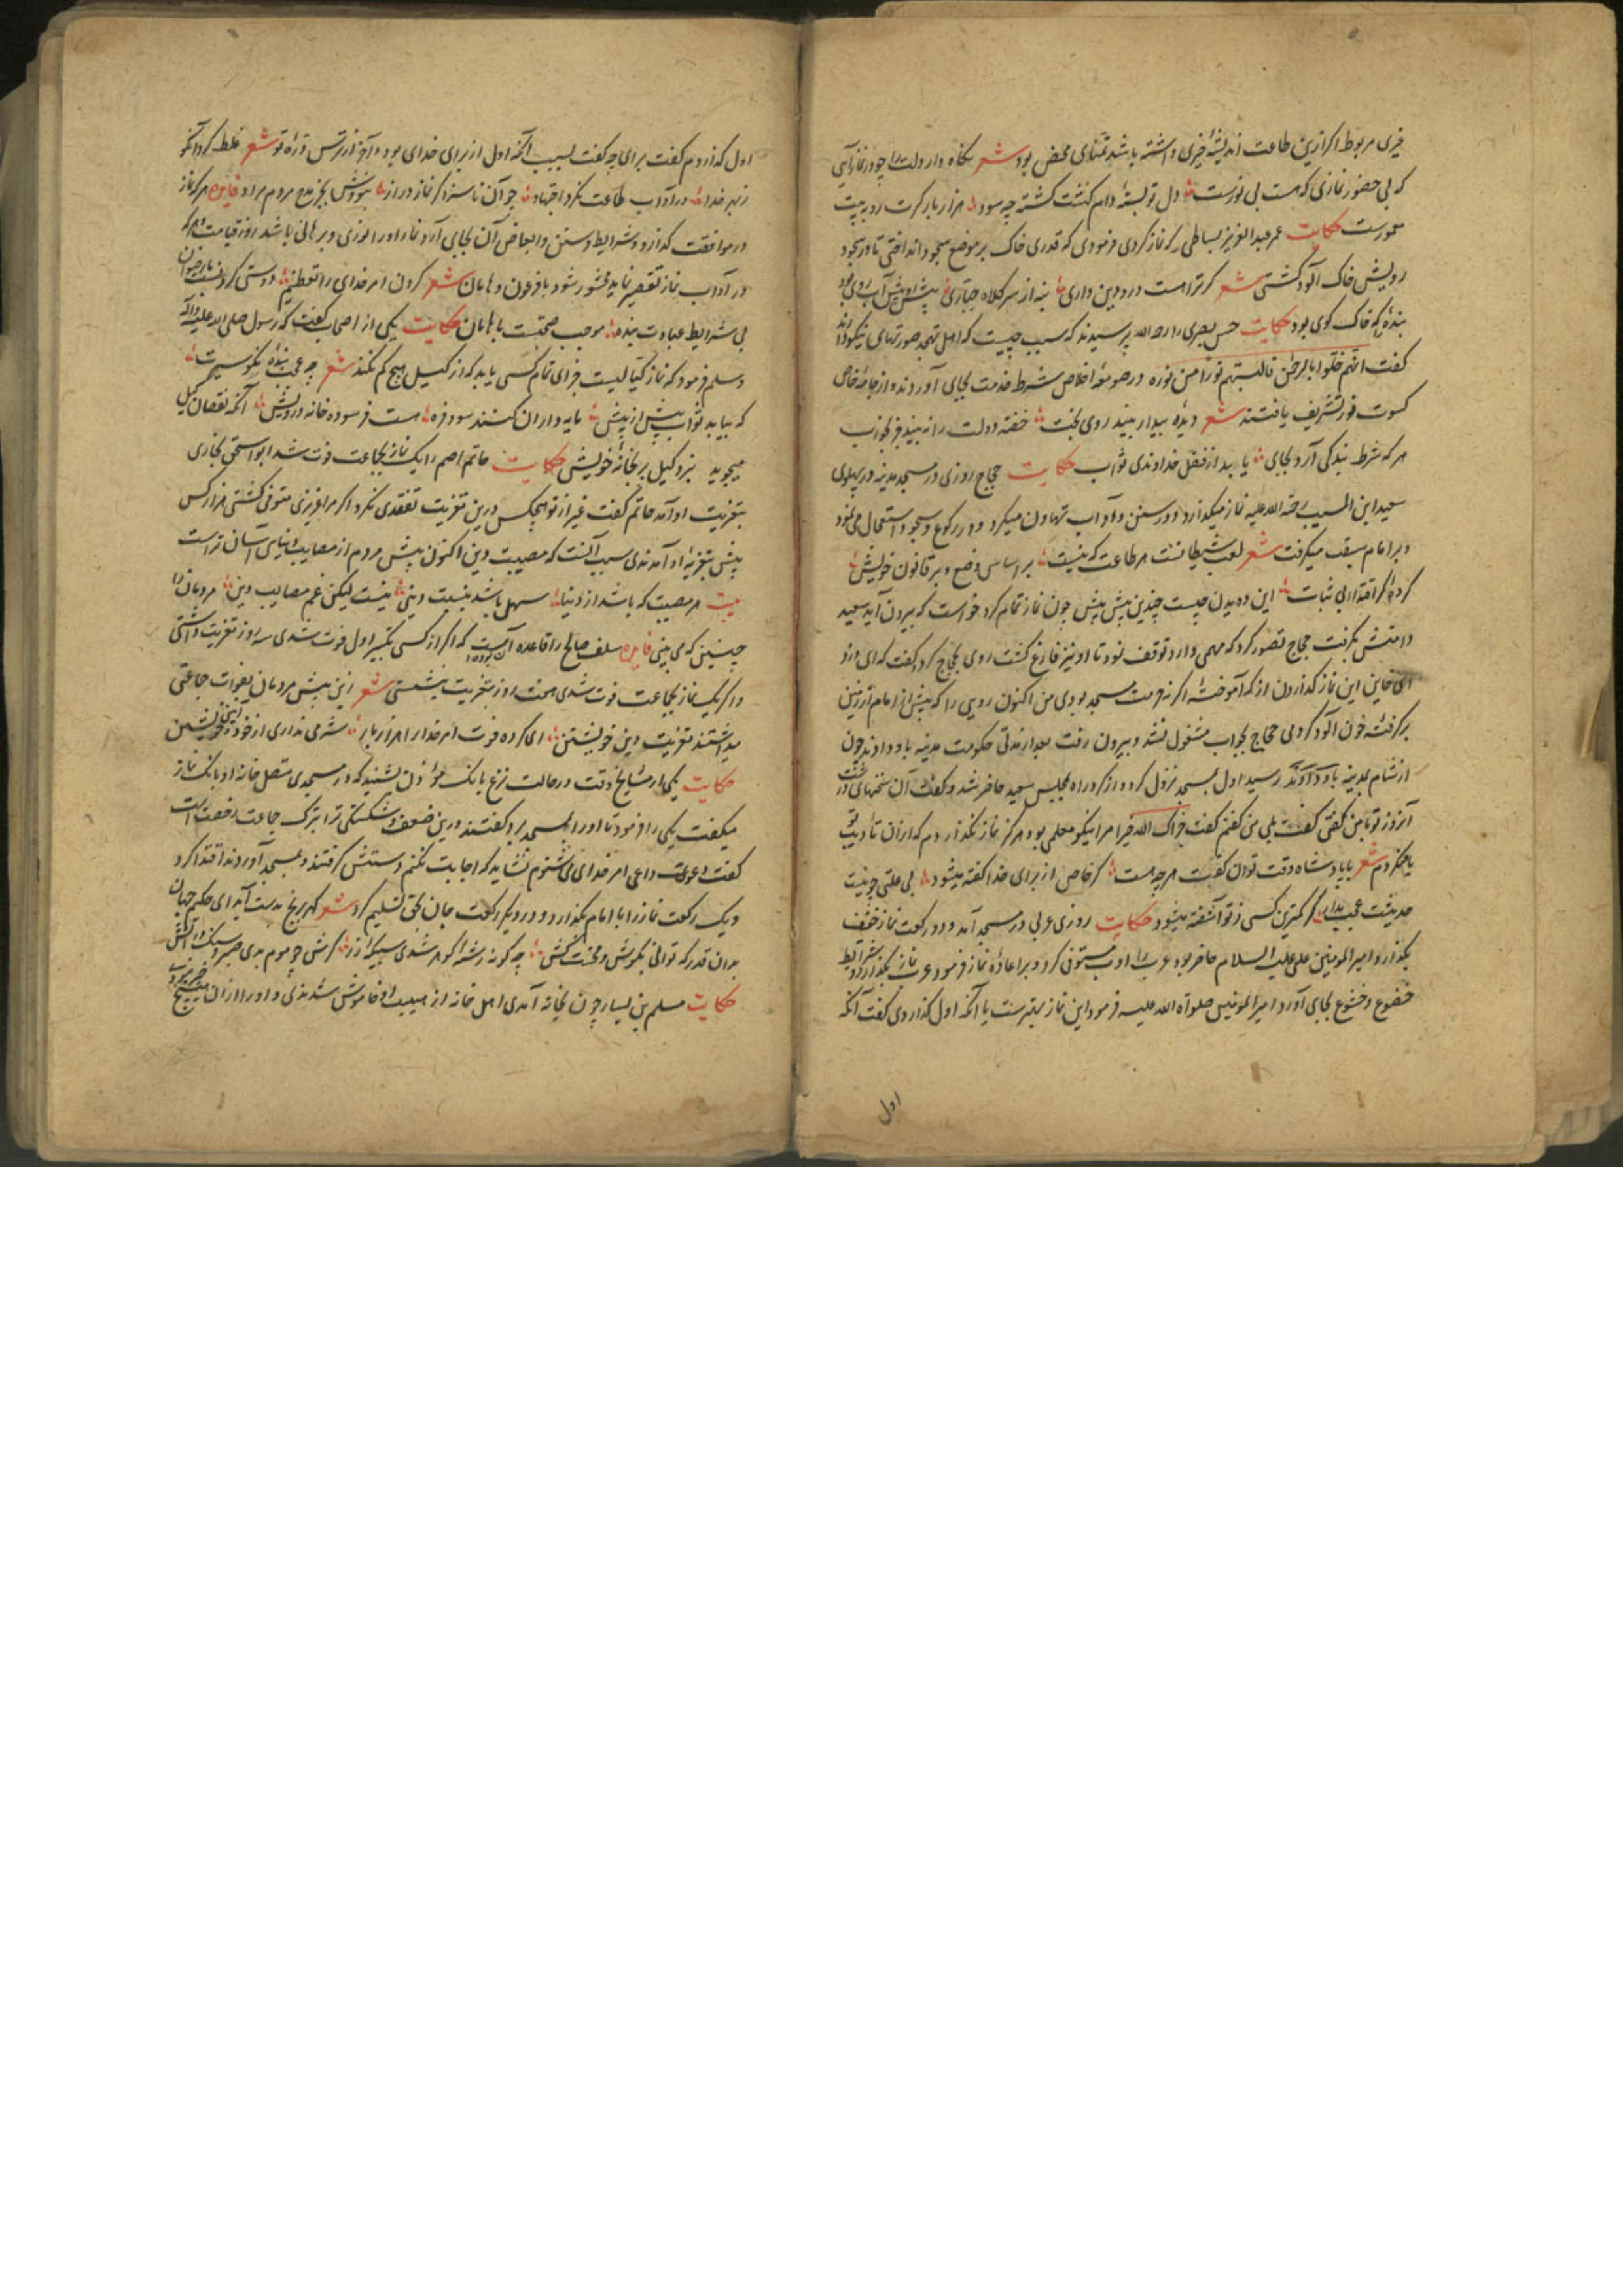 خیری مربوط اکر ازین طاعت اندیشهٔ خیری داشته باشد تمنای محض بود شعر نکاه دار دلت را چو در نماز آیی
که بی حضور نمازی که هست بی نورست دل تو بستهٔ دام کشت کشته چه سود هزار بار کرت رو به بیت
معمورست حکایت عمر عبد العزیز بساطی که نماز کردی فرمودی که قدری خاک بر موضع سجود انداختی تا در سجود
رویش خاک آلود کشتی شعر کر ترا هست درد دین داری بنه از سر کلاه جباری پیش او بیش آب روی بود
بندهٔ که خاک کوی بود حکایت حسن بصری را رحمه الله پرسیدند که سبب چیست که اهل تهجد صورتهای نیکو دارند
کفت انهم خلوا بالرحمن فالبسهم نورا من نوره در صومعهٔ اخلاص شرط خدمت بجای آوردند از جامهٔ خاص
کسوت نور تشریف یافتند شعر دیدهٔ بیدار بیند روی بخت خفته دولت را نبیند جز بخواب
هر که شرط بندکی آرد بجای یابد از فضل خداوندی ثواب حکایت حجاج روزی در مسجد مدینه در پهلوی
سعید ابن المسیب رحمة الله علیه نماز میکذارد و در سنن و آداب تهاون میکرد و در رکوع و سجود استعجال می نمود
و بر امام سبقت میکرفت شعر لعب شیطانست هر طاعت که نیست بر اساس وضع و بر قانون خویش
کردهٔ اقتدا بی ثبات این دویدن چیست چندین پیش پیش چون نماز تمام کرد خواست که بیرون آید سعید
دامنش بکرفت حجاج تصور کرد که مهمی دارد توقف نمود تا او نیز فارغ کشت روی بحجاج کرد کفت که ای دزد
ای خاین این نماز کذاردن از که آموختهٔ اکر نه حرمت مسجد بودی من اکنون رویی را که پیش از امام از زمین
برکرفتهٔ خون آلود کردمی حجاج بجواب مشغول نشد و بیرون رفت بعد از مدتی حکومت مدینه باو دادند چون
از شام بمدینه رسید اول بمسجد نزول کرد و از کرد راه بمجلس سعید حاضر شد و کفت آن سخنهای درشت
آنروز تو با من کفتی کفت بلی من کفتم کفت جزاک الله خیرا مرا نیکو معلمی بود هرکز نماز نکذاردم که از ان تادیب
یاد نکردم شعر با پادشاه وقت توان کفت هر چه هست کر خاص از برای خدا کفته میشود بی علتی چونیست
حدیثت عجب مدار کر کمترین کسی ز تو آشفته میشود حکایت روزی عربی در مسجد آمد و دو رکعت نماز خفیف
بکذارد امیر المومنین علی علیه السلام حاضر بود عرب را ادب مستوفی کرد و بر اعادهٔ نماز فرمود عرب نماز بکذارد و شرایط
خضوع و خشوع بجای آورد امیر المومنین صلواة الله علیه فرمود این نماز بهترست یا آنکه اول کذاردی کفت آنکه
اول
اول کذاردم کفت برای چه کفت بسبب آنکه اول از برای خدای بود و آخر از ترس درهٔ تو شعر غلط کرد آنکو
ز بهر خدا در آداب طاعت نکرد اجتهاد چو آن ناسزا کر نماز دراز نبودش بجز مدح مردم مراد فایده هر که نماز
در موافقت کذارد و شرایط و سنن و ابعاض آن بجای آرد نماز او را نوری و برهانی باشد روز قیامت و هر که
در آداب نماز تقصیر نماید محشور شود با فرعون و هامان شعر کردن امر خدای را تعظیم دوستی کردنست با رضوان
بی شرایط عبادت بنده موجب صحبتست با هامان حکایت یکی از اصحاب کفت که رسول صلی الله علیه و آله
و سلم فرمود که نماز کیالیست جزای تمام کسی یابد که از کیل هیچ کم نکند شعر چه عجب بندهٔ نکو سیرت
که بیابد ثواب بیش از پیش مایه داران کنند سود فره هست فرسوده خانه درویش آنکه نقصان کیل
میجوید نبرد کیل پر بخانهٔ خویش حکایت حاتم اصم را یک نماز بجماعت فوت شد ابو اسحق بخاری
بتعزیت او آمد حاتم کفت غیر از تو هیچکس درین تعزیت تفقدی نکرد اکر مرا عزیزی متوفی کشتی هزار کس
پیش بتعزیهٔ او آمدندی سبب آنست که مصیبت دین اکنون پیش مردم از مصایب دنیای آسان تر است
بیت هر مصیبت که باشد از دنیا سهل باشد بنسبت دینی نیست لیکن غم مصایب دین مردمان را
چنین که می بینی فایده سلف صالح را قاعده آن بودست که اکر از کسی تکبیر اول فوت شدی سه روز تعزیت داشتی
و اکر یک نماز بجماعت فوت شدی هفت روز بتعزیت بنشستی شعر زین پیش مردمان بفوات جماعتی
میداشتند تعزیت دین خویشتن ای کرده فوت امر خدا را هزار بار شرمی نداری از خود و از خویشتن
حکایت یکی از مشایخ وقت در حالت نزع بانک موذن بشنید که در مسجدی متصل خانه او بانک نماز
میکفت یکی را فرمود تا او را بمسجد برد کفتند درین ضعف و شکستکی ترا بترک جماعت رخصت است
کفت دعوت داعی امر خدای می شنوم نشاید که اجابت نکنم دستش کرفتند و بمسجد آوردند اقتدا کرد
و یک رکعت نماز را با امام بکذارد و در دیکر رکعت جان بحق تسلیم کرد شعر کهر برنج بدست آید ای حکیم جهان
بدان قدر که توانی بکوش و محنت کش چه کونه رشتهٔ کوهر شدی سبیکهٔ زر کرش چو موم بدی صبر و سنک در آتش
حکایت مسلم بن یسار چون بخانه آمدی اهل خانه از هیبت او خاموش شدندی و او را از ان هیچ خبر نبودی